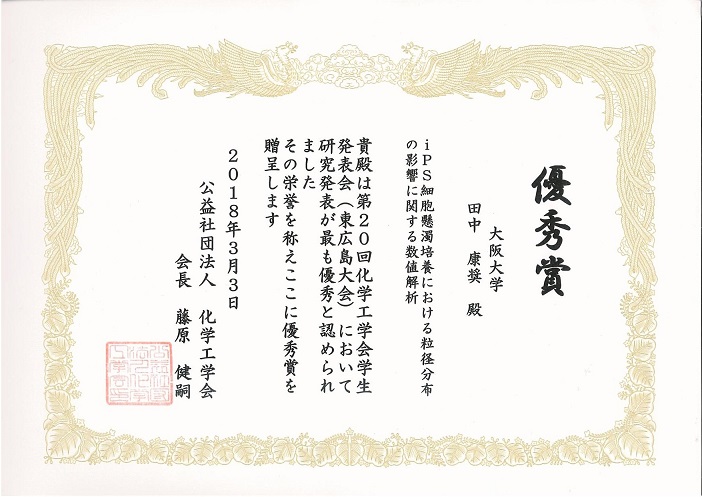 優秀賞
大阪大学
田中 康奨 殿
iPS細胞懸濁培養における粒径分布
の影響に関する数値解析
貴殿は第20回化学工学会学生
発表会（東広島大会）において
研究発表が最も優秀と認められ
ました
その栄誉を称えここに優秀賞を
贈呈します
2018年3月3日
公益社団法人 化学工学会
会長 藤原 健嗣